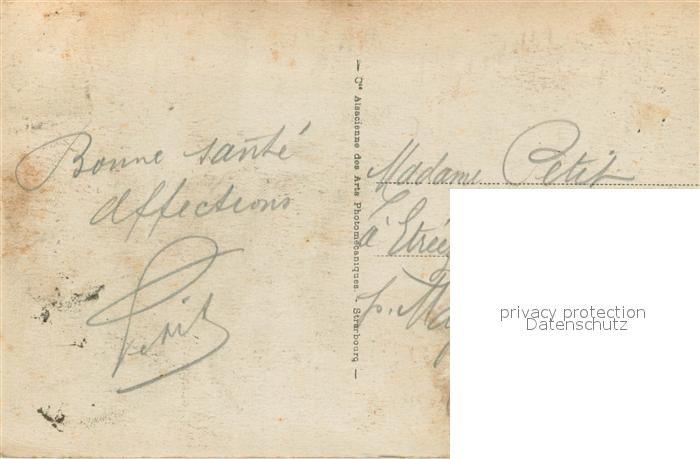 Bonne santé
affections
Petit
— Cie Alsacienne des Arts Photomécaniques. - Strasbourg —
Madame Petit
à
p.
privacy protection
Datenschutz